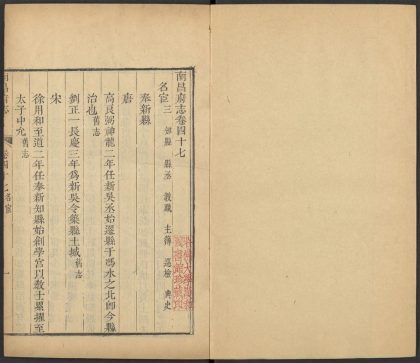 南昌府志卷四十七
名宦三 知縣 縣丞 教職 主簿 巡檢 典史
奉新縣
唐
高良弼神龍二年任新吳丞始遷縣于馮水之北卽今縣
治也舊志
劉正一長慶三年爲新吳令築縣土城舊志
宋
徐用和至道二年任奉新知縣始創學宮以敎士累擢至
太子中允舊志
南昌府志
卷四十七 名宦
一